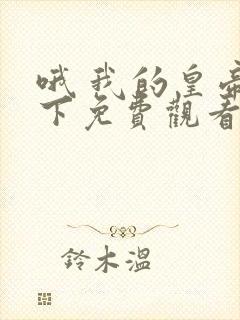 哦我的皇帝
下免費觀看
鈴木溫